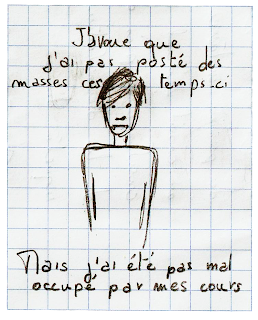 J'avoue que
j'ai pas posté des
masses ces temps-ci
Mais j'ai été pas mal
occupé par mes cours